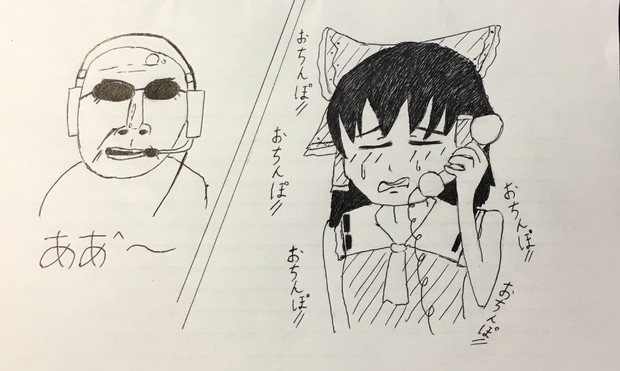 ああ^～
おちんぽ!!
おちんぽ!!
おちんぽ!!
おちんぽ!!
おちんぽ!!